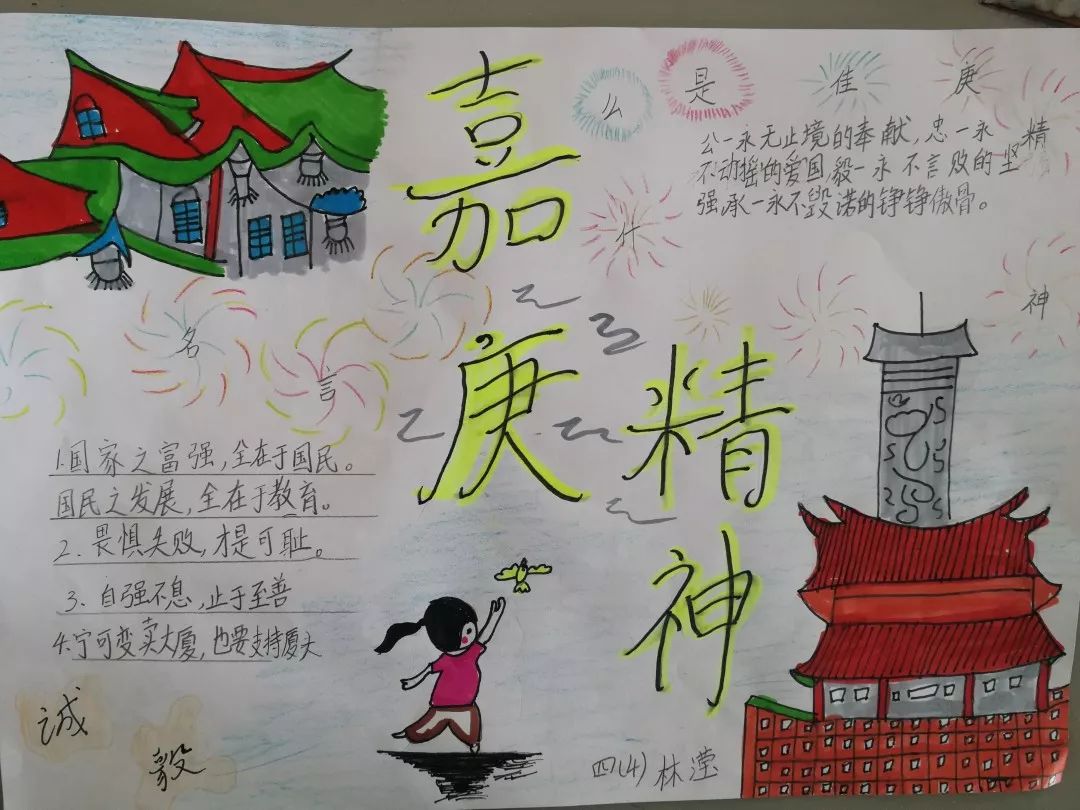 嘉庚精神
什么是佳庚精神
公一永无止境的奉献，忠一永
不动摇的爱国毅一永不言败的坚
强承一永不毁诺的铮铮傲骨。
名言
1.国家之富强，全在于国民。
国民之发展，全在于教育。
2、畏惧失败，才是可耻。
3、自强不息，止于至善
4.宁可变卖大厦，也要支持厦大
诚毅
四(4) 林滢